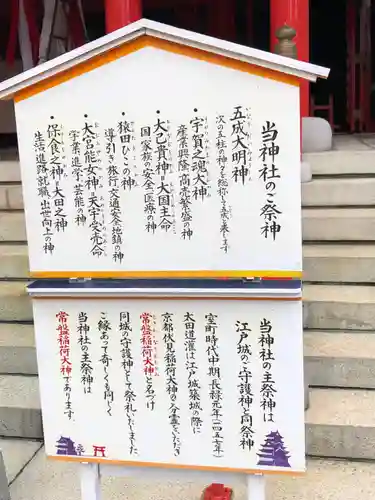 当神社のご祭神
五成大明神
次の五柱の神々を総称し五成と表します
・宇賀之魂大神
産業興隆商売繁盛の神
・大己貴神＝大国主命
国家族の安全・医療の神
・猿田ひこの神
導引き旅行交通安全地鎮の神
・大宮能女神＝天宇受売命
学業・進学・芸能の神
・保食之神＝大田之神
生活・進路就職出世向上の神
当神社の主祭神は
江戸城のご守護神と同祭神
室町時代中期長禄元年(一四五七年)
太田道灌は江戸城築城の際に
京都伏見稲荷大神の分霊をいただき
常盤稲荷大神と名づけ
同城の守護神として祭礼いたしました
ご縁あって奇しくも同じく
当神社の主祭神は
常盤稲荷大神であります。